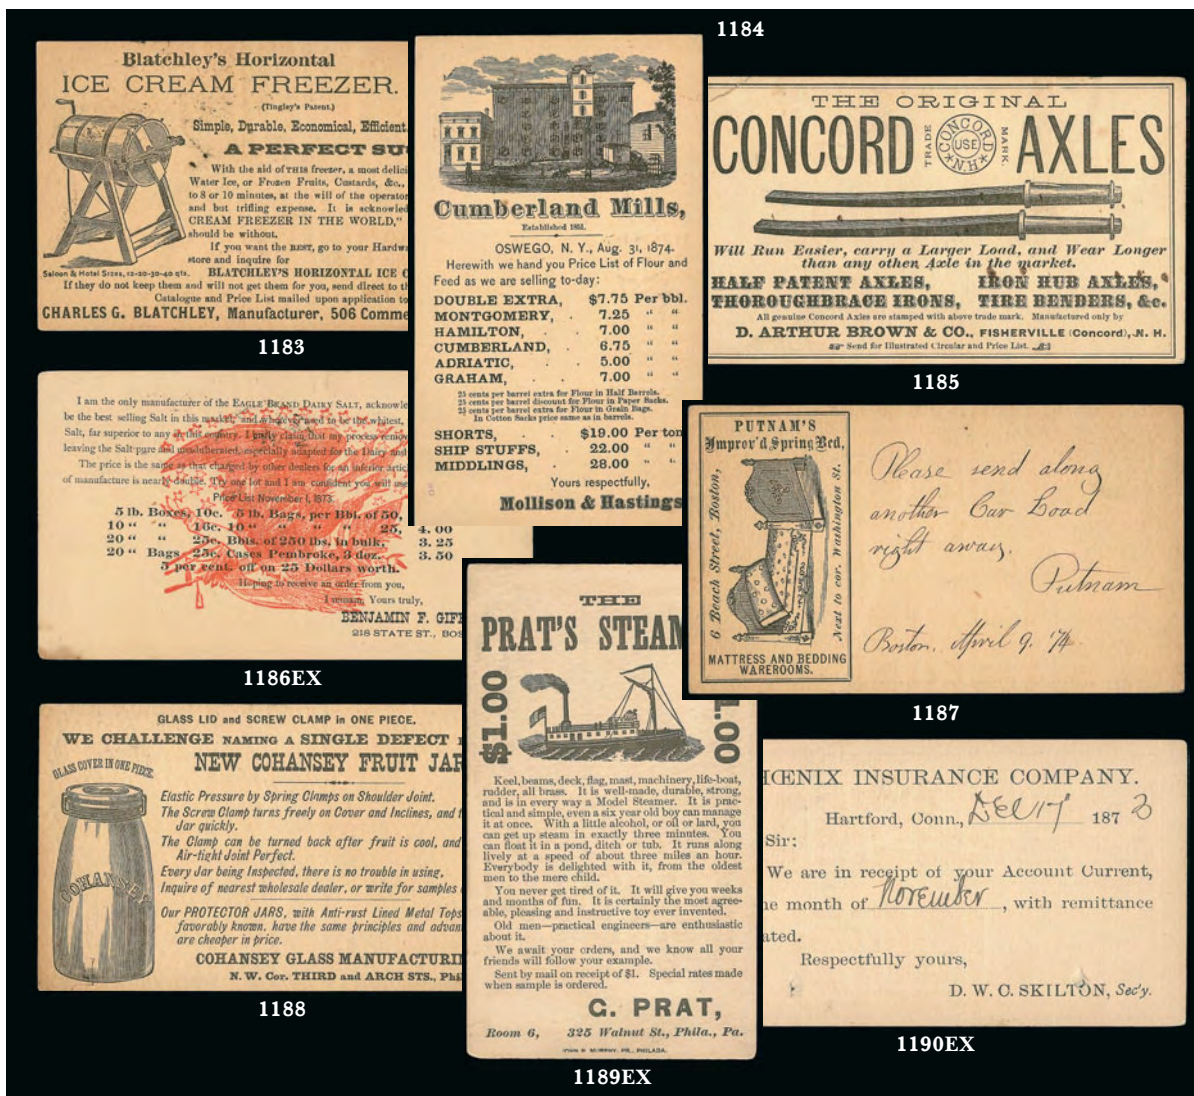 1184
Blatchley's Horizontal
ICE CREAM FREEZER.
(Tingley's Patent.)
Simple, Durable, Economical, Efficient
A PERFECT SU
With the aid of THIS freezer, a most delici
Water Ice, or Frozen Fruits, Custards, &c.,
to 8 or 10 minutes, at the will of the operator
and but trifling expense. It is acknowled
CREAM FREEZER IN THE WORLD,"
should be without.
If you want the BEST, go to your Hardw
store and inquire for
Saloon & Hotel Sizes, 12-20-30-40 qts.
BLATCHLEY'S HORIZONTAL ICE C
If they do not keep them and will not get them for you, send direct to th
Catalogue and Price List mailed upon application to
CHARLES G. BLATCHLEY, Manufacturer, 506 Comme
1183
Cumberland Mills,
Established 1851.
OSWEGO, N. Y., Aug. 31, 1874.
Herewith we hand you Price List of Flour and
Feed as we are selling to-day:
DOUBLE EXTRA, $7.75 Per bbl.
MONTGOMERY, . 7.25 " "
HAMILTON, . . 7.00 " "
CUMBERLAND, . 6.75 " "
ADRIATIC, . . 5.00 " "
GRAHAM, . . 7.00 " "
25 cents per barrel extra for Flour in Half Barrels.
25 cents per barrel discount for Flour in Paper Sacks.
25 cents per barrel extra for Flour in Grain Bags.
In Cotton Sacks price same as in barrels.
SHORTS, . . $19.00 Per ton
SHIP STUFFS, . 22.00 " "
MIDDLINGS, . 28.00 " "
Yours respectfully,
Mollison & Hastings
THE ORIGINAL
CONCORD AXLES
TRADE MARK
CONCORD
USE
N.H.
Will Run Easier, carry a Larger Load, and Wear Longer
than any other Axle in the market.
HALF PATENT AXLES, IRON HUB AXLES,
THOROUGHBRACE IRONS, TIRE BENDERS, &c.
All genuine Concord Axles are stamped with above trade mark. Manufactured only by
D. ARTHUR BROWN & CO., FISHERVILLE (Concord), N. H.
Send for Illustrated Circular and Price List.
1185
I am the only manufacturer of the EAGLE BRAND DAIRY SALT, acknowle
be the best selling Salt in this market, and wherever used to be the whitest,
Salt, far superior to any in this country. I justly claim that my process remov
leaving the Salt pure and unadulterated, especially adapted for the Dairy and
The price is the same as that charged by other dealers for an inferior artic
of manufacture is nearly double. Try one lot and I am confident you will use
Price List November 1, 1873.
5 lb. Boxes, 10c. 5 lb. Bags, per Bbl. of 50,
10 " " 16c. 10 " " " " 25, 4.00
20 " " 25c. Bbls. of 250 lbs. in bulk, 3.25
20 " Bags 25c. Cases Pembroke, 3 doz. 3.50
5 per cent. off on 25 Dollars worth.
Hoping to receive an order from you,
I remain, Yours truly,
BENJAMIN F. GIFF
218 STATE ST., BOS
1186EX
PUTNAM'S
Improv'd Spring Bed,
6 Beach Street, Boston,
Next to cor. Washington St.
MATTRESS AND BEDDING
WAREROOMS.
Please send along
another Car Load
right away.
Putnam
Boston. April 9. '74
1187
GLASS LID and SCREW CLAMP in ONE PIECE.
WE CHALLENGE NAMING A SINGLE DEFECT
NEW COHANSEY FRUIT JAR
GLASS COVER IN ONE PIECE.
COHANSEY
Elastic Pressure by Spring Clamps on Shoulder Joint.
The Screw Clamp turns freely on Cover and Inclines, and
Jar quickly.
The Clamp can be turned back after fruit is cool, and
Air-tight Joint Perfect.
Every Jar being Inspected, there is no trouble in using.
Inquire of nearest wholesale dealer, or write for samples
Our PROTECTOR JARS, with Anti-rust Lined Metal Tops
favorably known, have the same principles and advan
are cheaper in price.
COHANSEY GLASS MANUFACTURI
N. W. Cor. THIRD and ARCH STS., Phil
1188
THE
PRAT'S STEAM
$1.00
1.00
Keel, beams, deck, flag, mast, machinery, life-boat,
rudder, all brass. It is well-made, durable, strong,
and is in every way a Model Steamer. It is prac-
tical and simple, even a six year old boy can manage
it at once. With a little alcohol, or oil or lard, you
can get up steam in exactly three minutes. You
can float it in a pond, ditch or tub. It runs along
lively at a speed of about three miles an hour.
Everybody is delighted with it, from the oldest
men to the mere child.
You never get tired of it. It will give you weeks
and months of fun. It is certainly the most agree-
able, pleasing and instructive toy ever invented.
Old men—practical engineers—are enthusiastic
about it.
We await your orders, and we know all your
friends will follow your example.
Sent by mail on receipt of $1. Special rates made
when sample is ordered.
G. PRAT,
Room 6, 325 Walnut St., Phila., Pa.
JOHN P. MURPHY, PR., PHILADA.
1189EX
HŒNIX INSURANCE COMPANY.
Hartford, Conn., Dec 17 1873
Sir:
We are in receipt of your Account Current,
he month of November, with remittance
ated.
Respectfully yours,
D. W. C. SKILTON, Sec'y.
1190EX